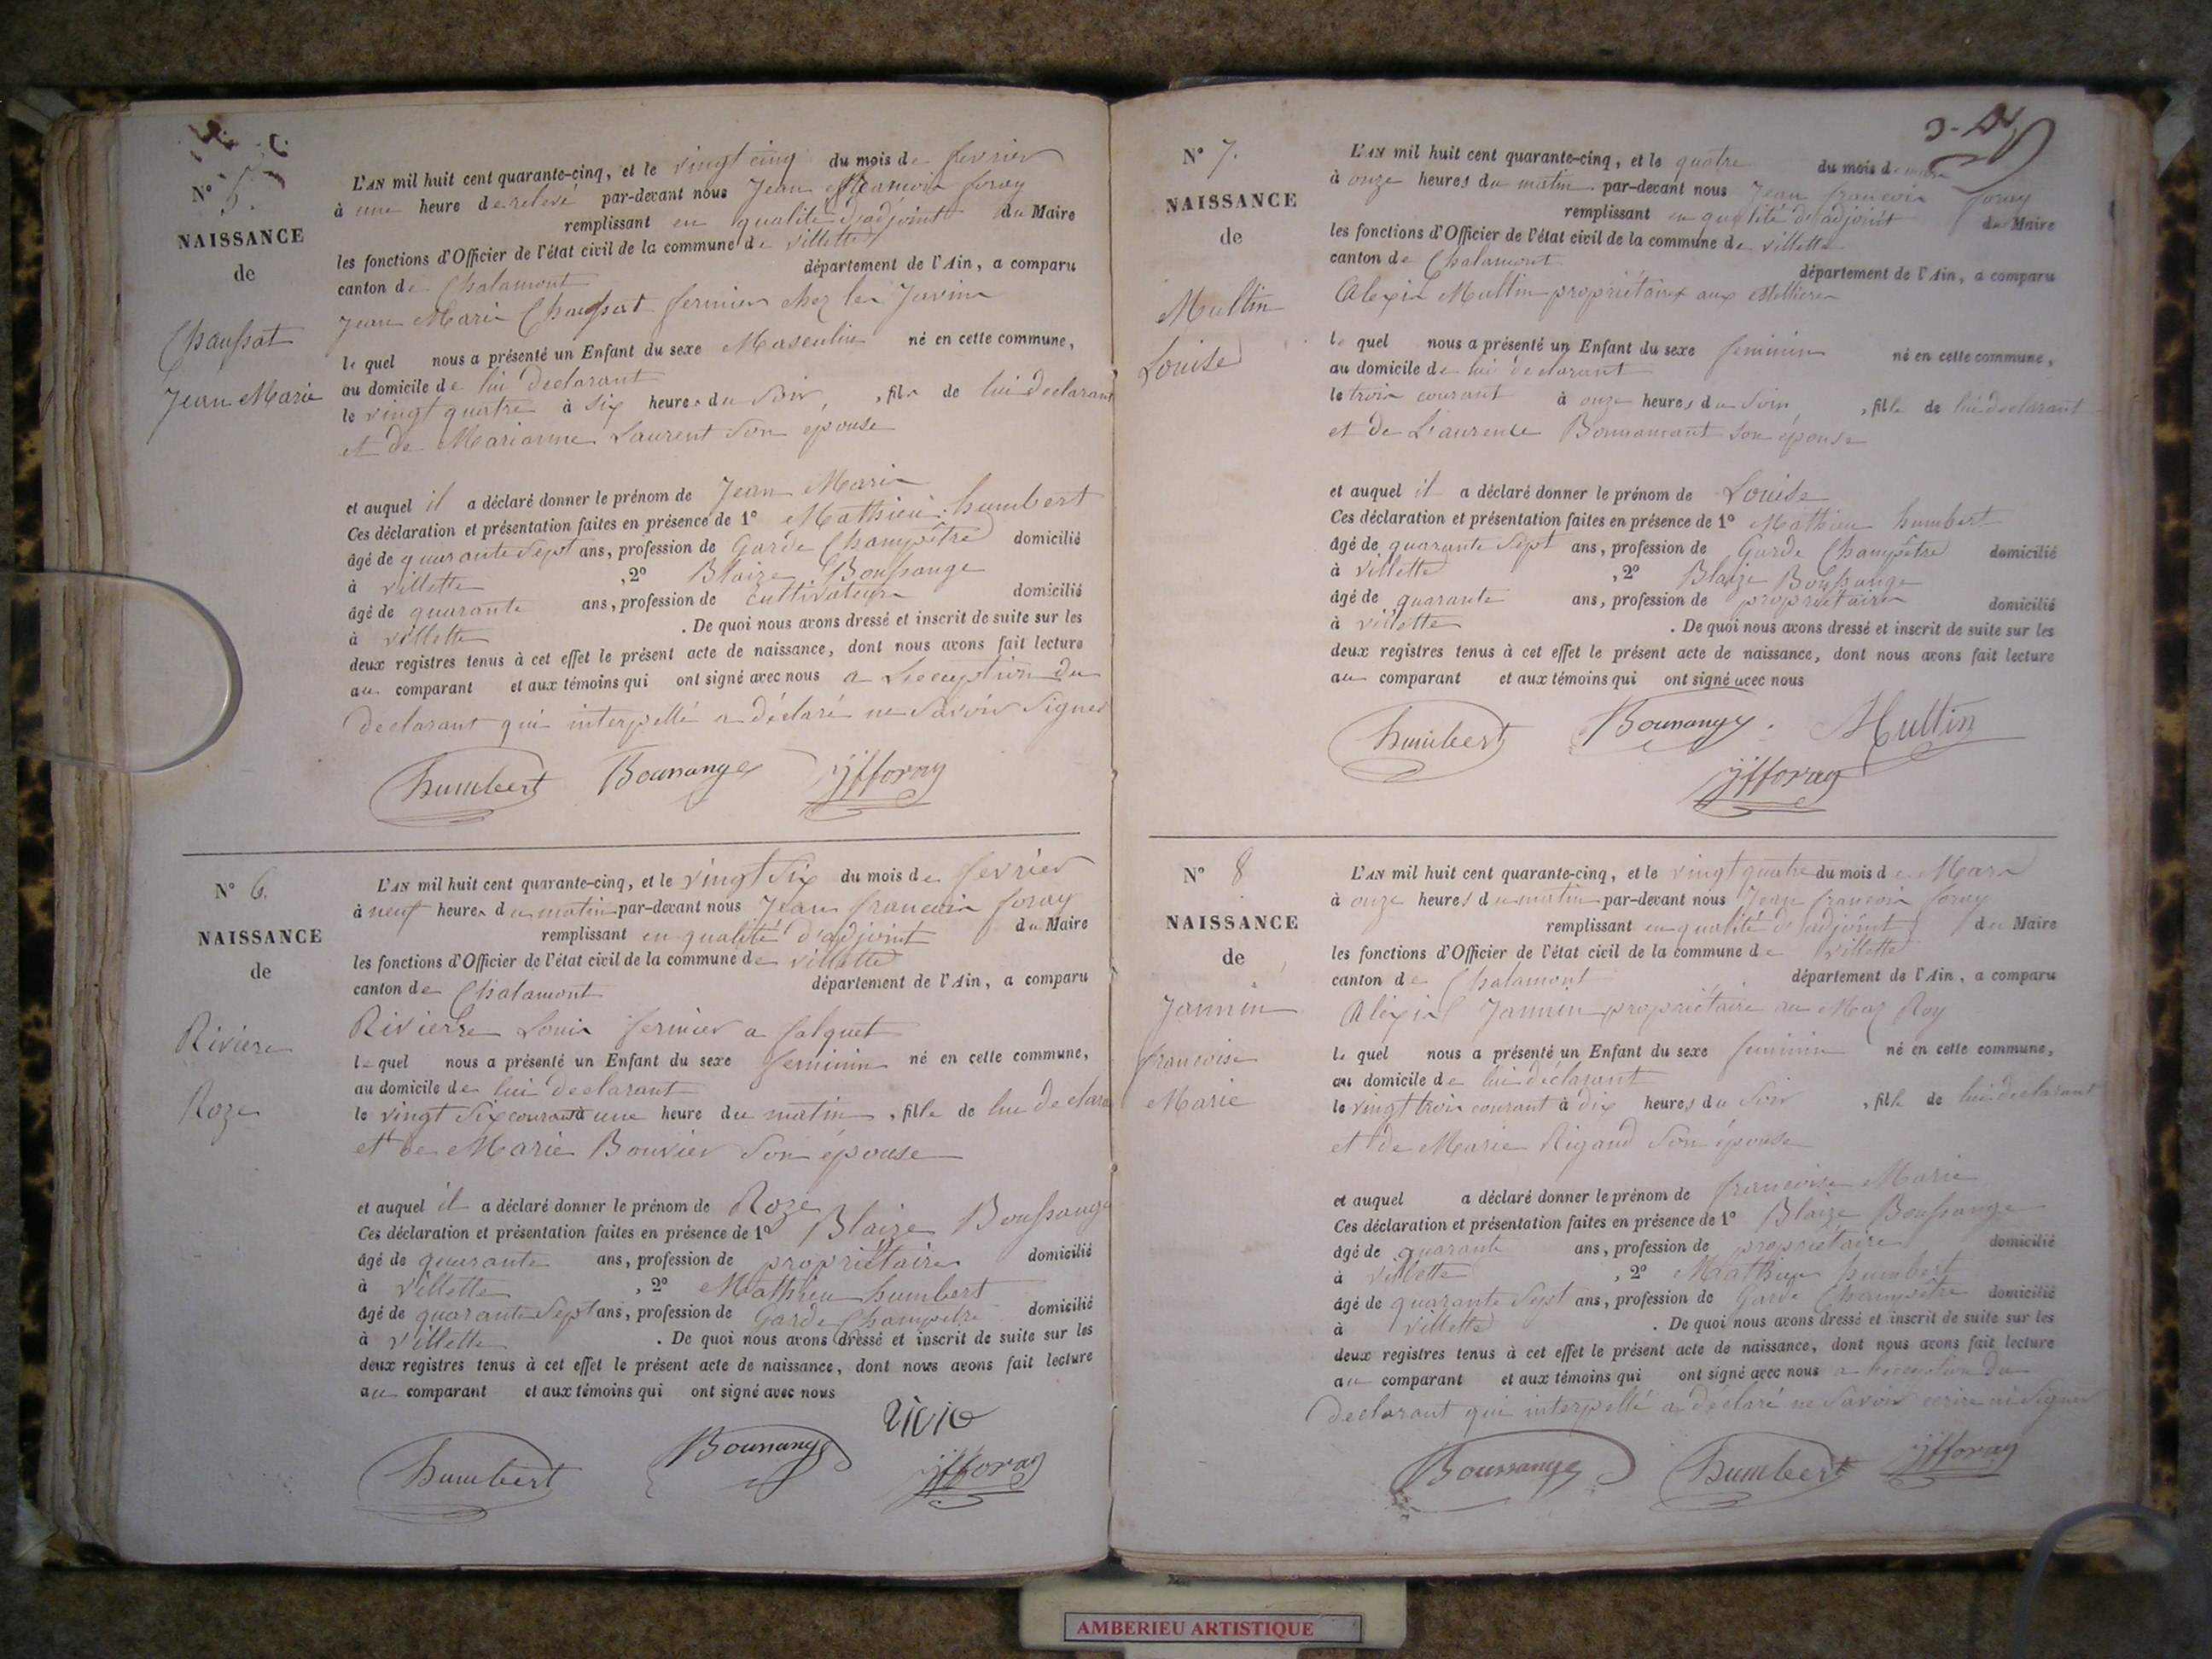 N° 5.
NAISSANCE
de
Chaussat
Jean Marie
L'AN mil huit cent quarante-cinq, et le vingt cinq du mois de fevrier
à une heure de relevé par-devant nous Jean francois foray
remplissant en qualité d'adjoint du Maire
les fonctions d'Officier de l'état civil de la commune de villette
canton de Chalamont département de l'Ain, a comparu
Jean Marie Chaussat fermier chez les Javin
le quel nous a présenté un Enfant du sexe Masculin né en cette commune,
au domicile de lui declarant
le vingt quatre à six heures du Soir, , fils de lui declarant
et de Marianne Laurent Son epouse
et auquel il a déclaré donner le prénom de Jean Marie
Ces déclaration et présentation faites en présence de 1° Mathieu humbert
âgé de quarante Sept ans, profession de Garde Champêtre domicilié
à villette , 2° Blaize Boussange
âgé de quarante ans, profession de Cultivateur domicilié
à villette . De quoi nous avons dressé et inscrit de suite sur les
deux registres tenus à cet effet le présent acte de naissance, dont nous avons fait lecture
au comparant et aux témoins qui ont signé avec nous a L'exception du
declarant qui interpellé a déclaré ne Savoir Signer
humbert Boussange jfforay
N° 6.
NAISSANCE
de
Riviere
Roze
L'AN mil huit cent quarante-cinq, et le vingt Six du mois de fevrier
à neuf heures du matin par-devant nous Jean francois foray
remplissant en qualité d'adjoint du Maire
les fonctions d'Officier de l'état civil de la commune de villette
canton de Chalamont département de l'Ain, a comparu
Rivierre Louis fermier a falquet
le quel nous a présenté un Enfant du sexe feminin né en cette commune,
au domicile de lui declarant
le vingt Six courant à une heure du matin , fille de lui declarant
et de Marie Bouvier Son épouse
et auquel il a déclaré donner le prénom de Roze
Ces déclaration et présentation faites en présence de 1° Blaize Boussange
âgé de quarante ans, profession de propriétaire domicilié
à villette , 2° Mathieu humbert
âgé de quarante Sept ans, profession de Garde Champetre domicilié
à villette . De quoi nous avons dressé et inscrit de suite sur les
deux registres tenus à cet effet le présent acte de naissance, dont nous avons fait lecture
au comparant et aux témoins qui ont signé avec nous
humbert Boussange jfforay
N° 7.
NAISSANCE
de
Multin
Louise
L'AN mil huit cent quarante-cinq, et le quatre du mois de mars
à onze heures du matin par-devant nous Jean francois foray
remplissant en qualité d'adjoint du Maire
les fonctions d'Officier de l'état civil de la commune de villette
canton de Chalamont département de l'Ain, a comparu
Alexis Multin propriétaire aux
le quel nous a présenté un Enfant du sexe feminin né en cette commune,
au domicile de lui declarant
le trois courant à onze heures du Soir, , fille de lui declarant
et de Laurence Bonnamant son épouse
et auquel il a déclaré donner le prénom de Louise
Ces déclaration et présentation faites en présence de 1° Mathieu humbert
âgé de quarante Sept ans, profession de Garde Champêtre domicilié
à villette , 2° Blaize Boussange
âgé de quarante ans, profession de propriétaire domicilié
à villette . De quoi nous avons dressé et inscrit de suite sur les
deux registres tenus à cet effet le présent acte de naissance, dont nous avons fait lecture
au comparant et aux témoins qui ont signé avec nous
humbert Boussange Multin
jfforay
N° 8
NAISSANCE
de
Jannin
francoise
Marie
L'AN mil huit cent quarante-cinq, et le vingt quatre du mois de Mars
à onze heures du matin par-devant nous Jean francois foray
remplissant en qualité d'adjoint du Maire
les fonctions d'Officier de l'état civil de la commune de villette
canton de Chalamont département de l'Ain, a comparu
Alexis Jannin propriétaire au Maz Roy
le quel nous a présenté un Enfant du sexe feminin né en cette commune,
au domicile de lui déclarant
le vingt trois courant à dix heures du Soir , fille de lui declarant
et de Marie Rigaud Son épouse
et auquel a déclaré donner le prénom de francoise Marie
Ces déclaration et présentation faites en présence de 1° Blaize Boussange
âgé de quarante ans, profession de propriétaire domicilié
à villette , 2° Mathieu humbert
âgé de quarante Sept ans, profession de Garde Champêtre domicilié
à villette . De quoi nous avons dressé et inscrit de suite sur les
deux registres tenus à cet effet le présent acte de naissance, dont nous avons fait lecture
au comparant et aux témoins qui ont signé avec nous a l'exception du
declarant qui interpellé a déclaré ne Savoir ecrire ni Signer
Boussange humbert jfforay
AMBERIEU ARTISTIQUE